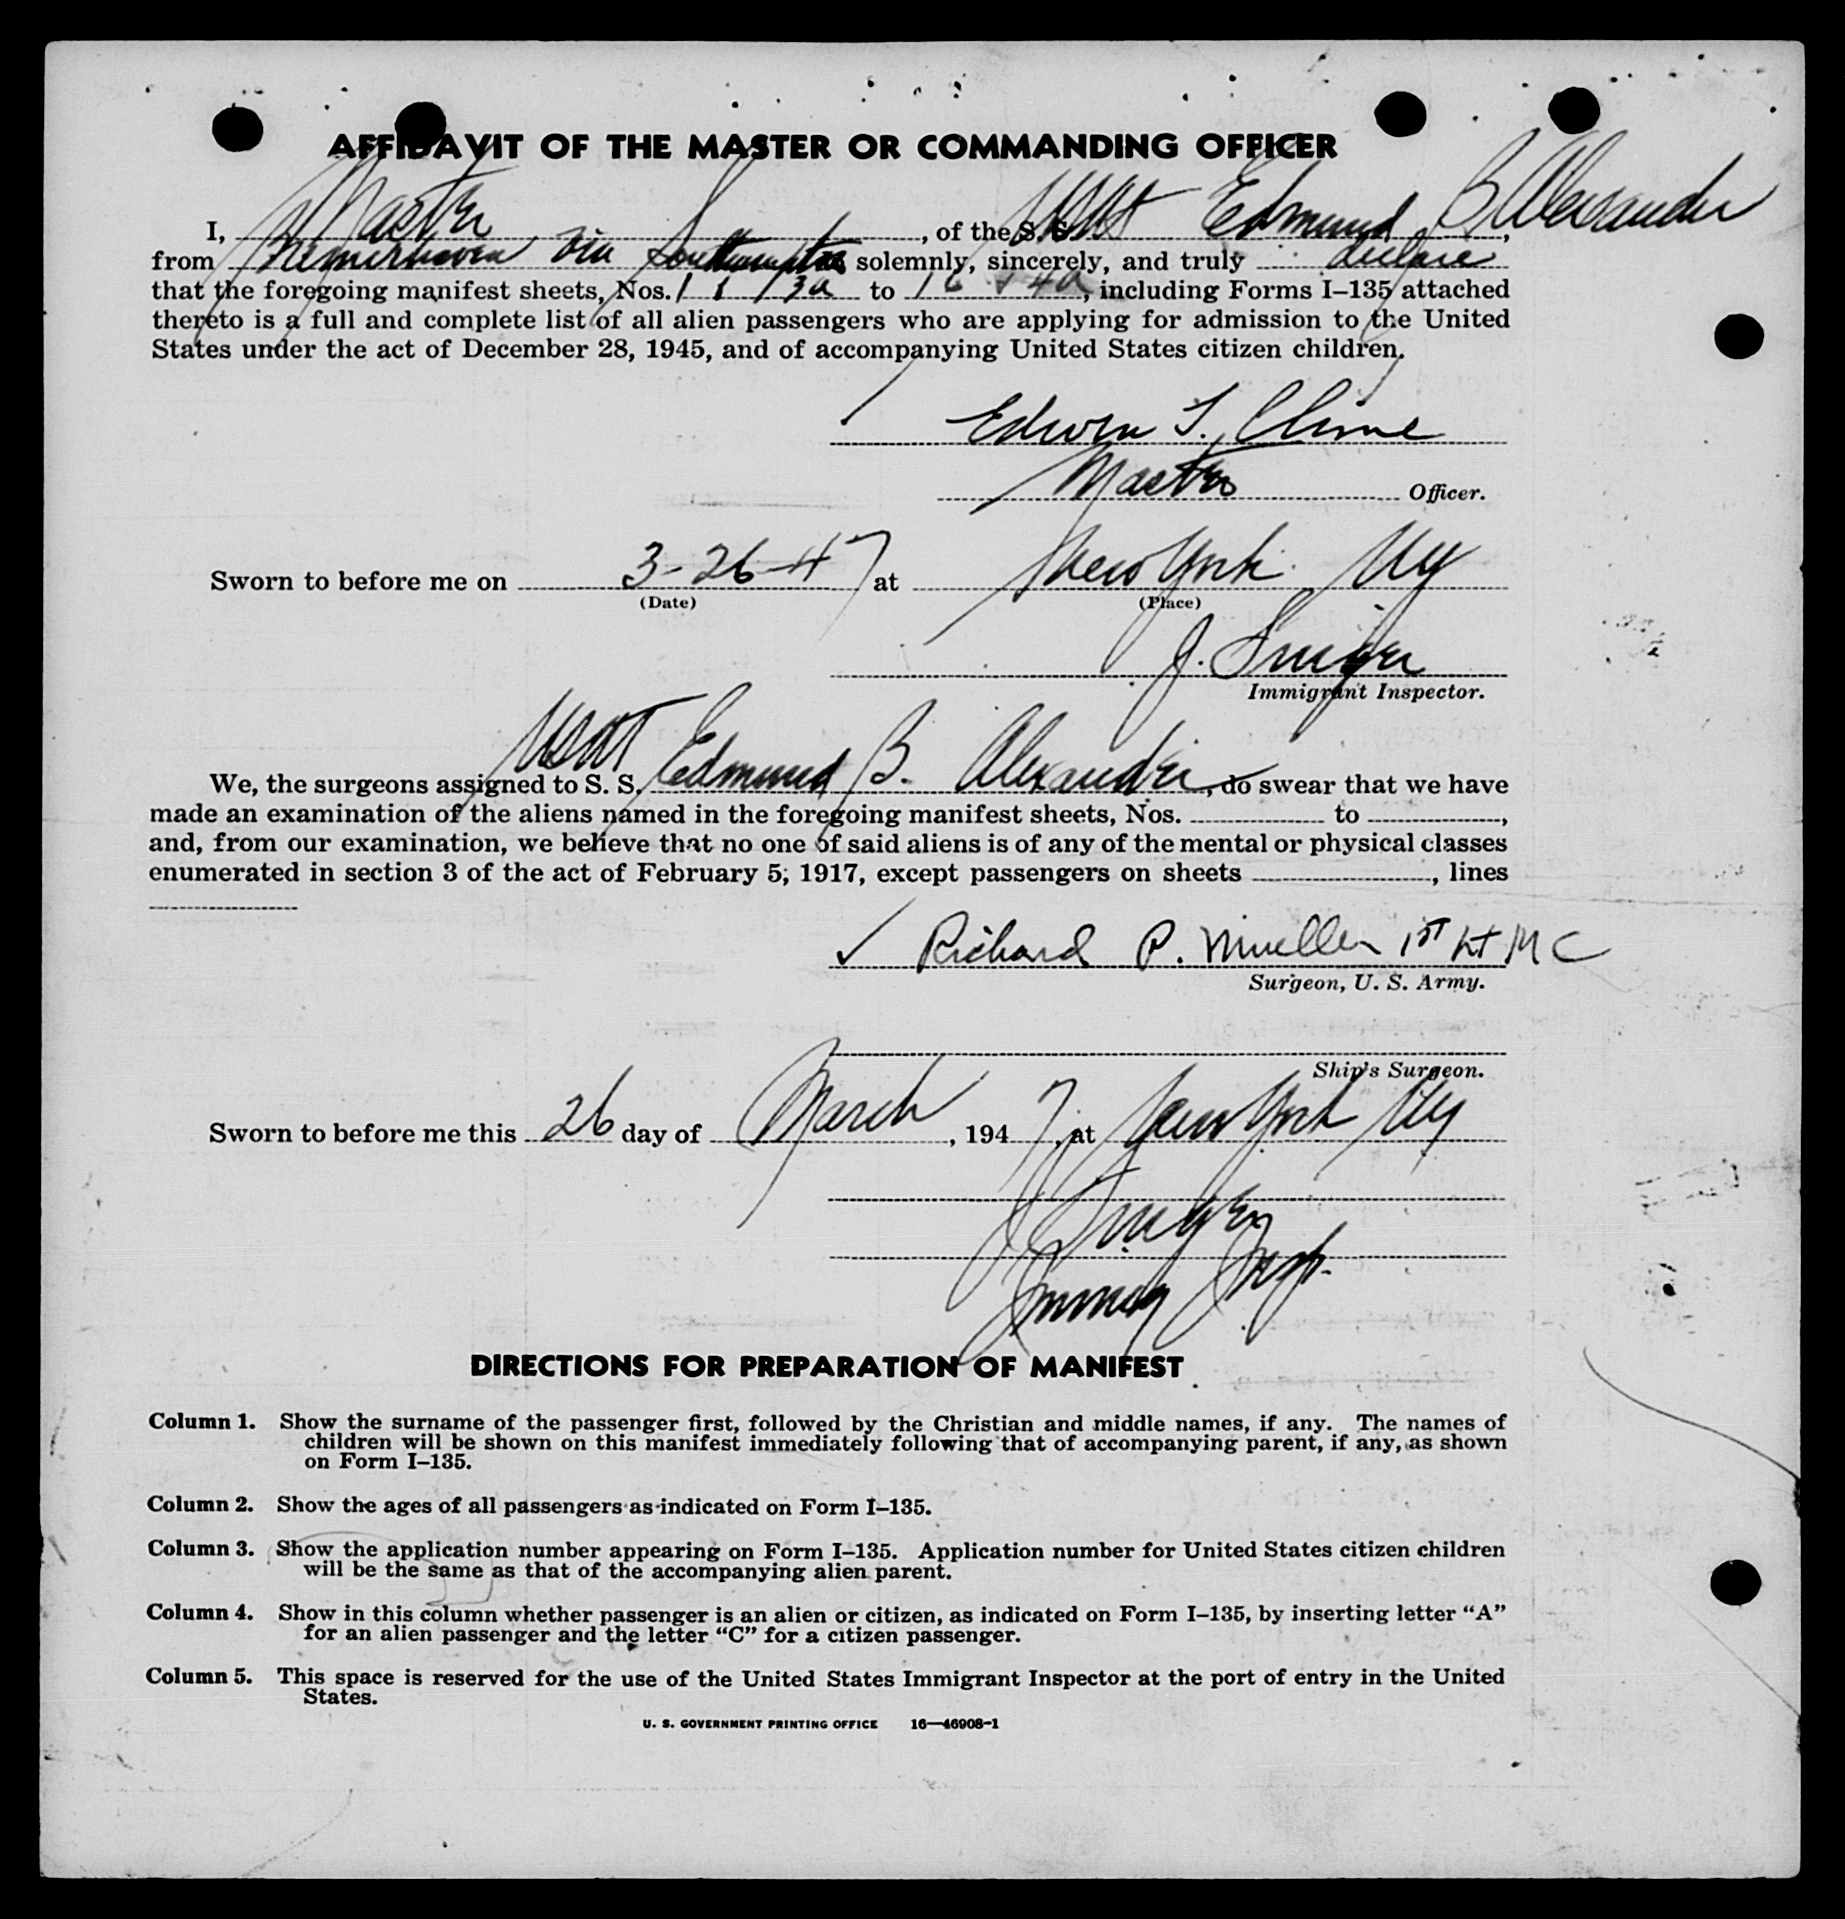 AFFIDAVIT OF THE MASTER OR COMMANDING OFFICER
I, Master, of the S. S. USAT Edmund B Alexander,
from Bremerhaven via Southampton solemnly, sincerely, and truly declare
that the foregoing manifest sheets, Nos. to , including Forms I–135 attached
thereto is a full and complete list of all alien passengers who are applying for admission to the United
States under the act of December 28, 1945, and of accompanying United States citizen children.
Edwin T. Cline
Master Officer.
Sworn to before me on 3-26-47 at New York NY
(Date) (Place)
J.
Immigrant Inspector.
USAT
We, the surgeons assigned to S. S. Edmund B. Alexander, do swear that we have
made an examination of the aliens named in the foregoing manifest sheets, Nos. to ,
and, from our examination, we believe that no one of said aliens is of any of the mental or physical classes
enumerated in section 3 of the act of February 5, 1917, except passengers on sheets , lines
✓ Richard P. Mueller 1st Lt MC
Surgeon, U. S. Army.
Ship's Surgeon.
Sworn to before me this 26 day of March, 1947, at New York NY
J
Immig Insp.
DIRECTIONS FOR PREPARATION OF MANIFEST
Column 1. Show the surname of the passenger first, followed by the Christian and middle names, if any. The names of
children will be shown on this manifest immediately following that of accompanying parent, if any, as shown
on Form I–135.
Column 2. Show the ages of all passengers as indicated on Form I–135.
Column 3. Show the application number appearing on Form I–135. Application number for United States citizen children
will be the same as that of the accompanying alien parent.
Column 4. Show in this column whether passenger is an alien or citizen, as indicated on Form I–135, by inserting letter “A”
for an alien passenger and the letter “C” for a citizen passenger.
Column 5. This space is reserved for the use of the United States Immigrant Inspector at the port of entry in the United
States.
U. S. GOVERNMENT PRINTING OFFICE 16—46908-1